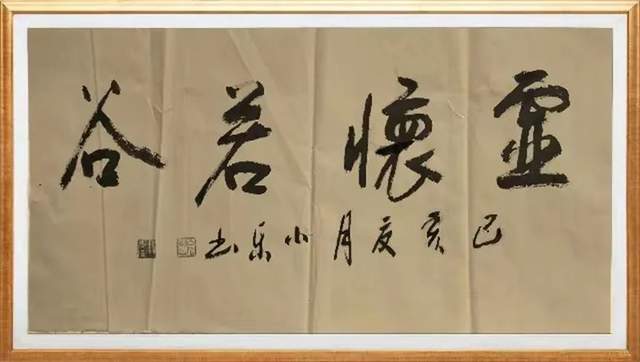 虚懷若谷
己亥夏月小乐书